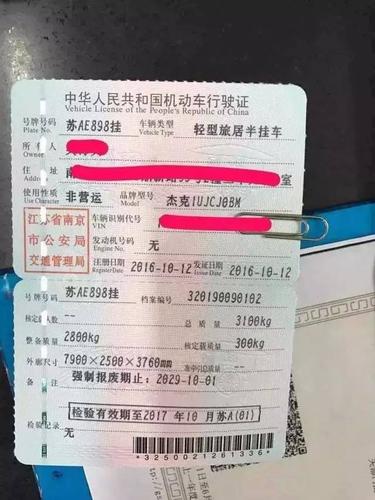 中华人民共和国机动车行驶证
Vehicle License of the People's Republic of China
号牌号码 苏AE898挂 车辆类型 轻型旅居半挂车
Plate No. Vehicle Type
所有人
Owner
住址 南 室
使用性质 非营运 品牌型号 杰克IUJCJ0BM
Use Character Model
江苏省南京
市公安局
交通管理局
车辆识别代号
VIN
发动机号码 无
注册日期 2016-10-12 发证日期 2016-10-12
Register Date Issue Date
号牌号码 苏AE898挂 档案编号 320190090102
核定载人数 -- 总质量 3100kg
整备质量 2800kg 核定载质量 300kg
外廓尺寸 7900×2500×3760mm 准牵引总质量 --
备注 强制报废期止：2029-10-01
检验有效期至2017年10月苏A(01)
检验记录 无
*3250021261336*